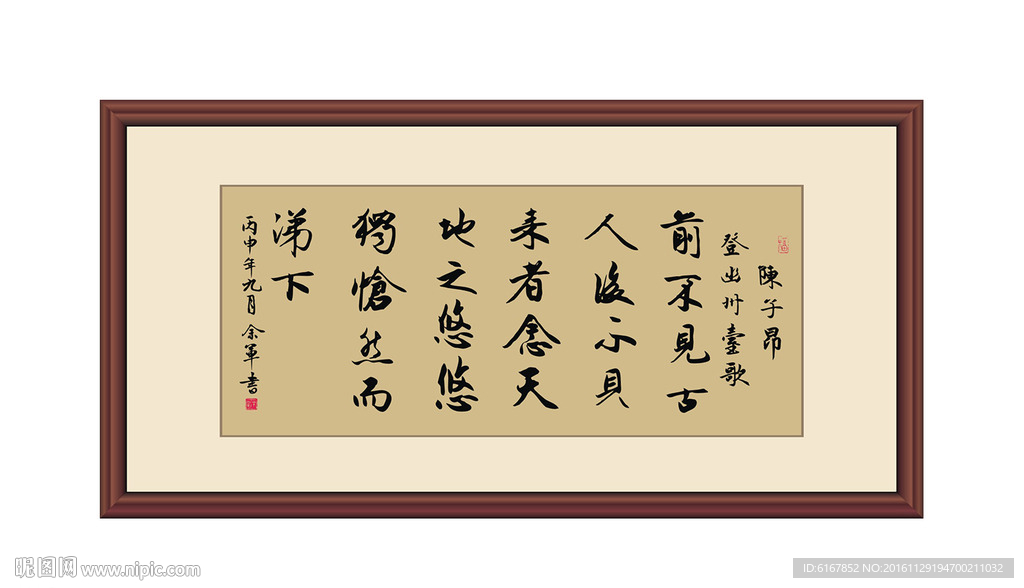 陳子昂
登幽州臺歌
前不見古
人後不見
来者念天
地之悠悠
獨愴然而
涕下
丙申年九月 余軍書
昵图网 www.nipic.com
ID:6167852 NO:20161129194700211032